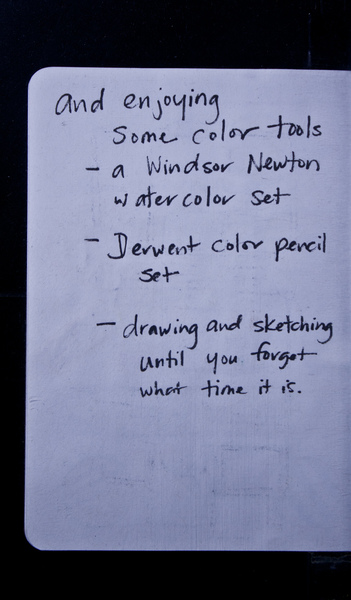 and enjoying
some color tools
- a Windsor Newton
watercolor set
- Derwent color pencil
set
- drawing and sketching
until you forget
what time it is.